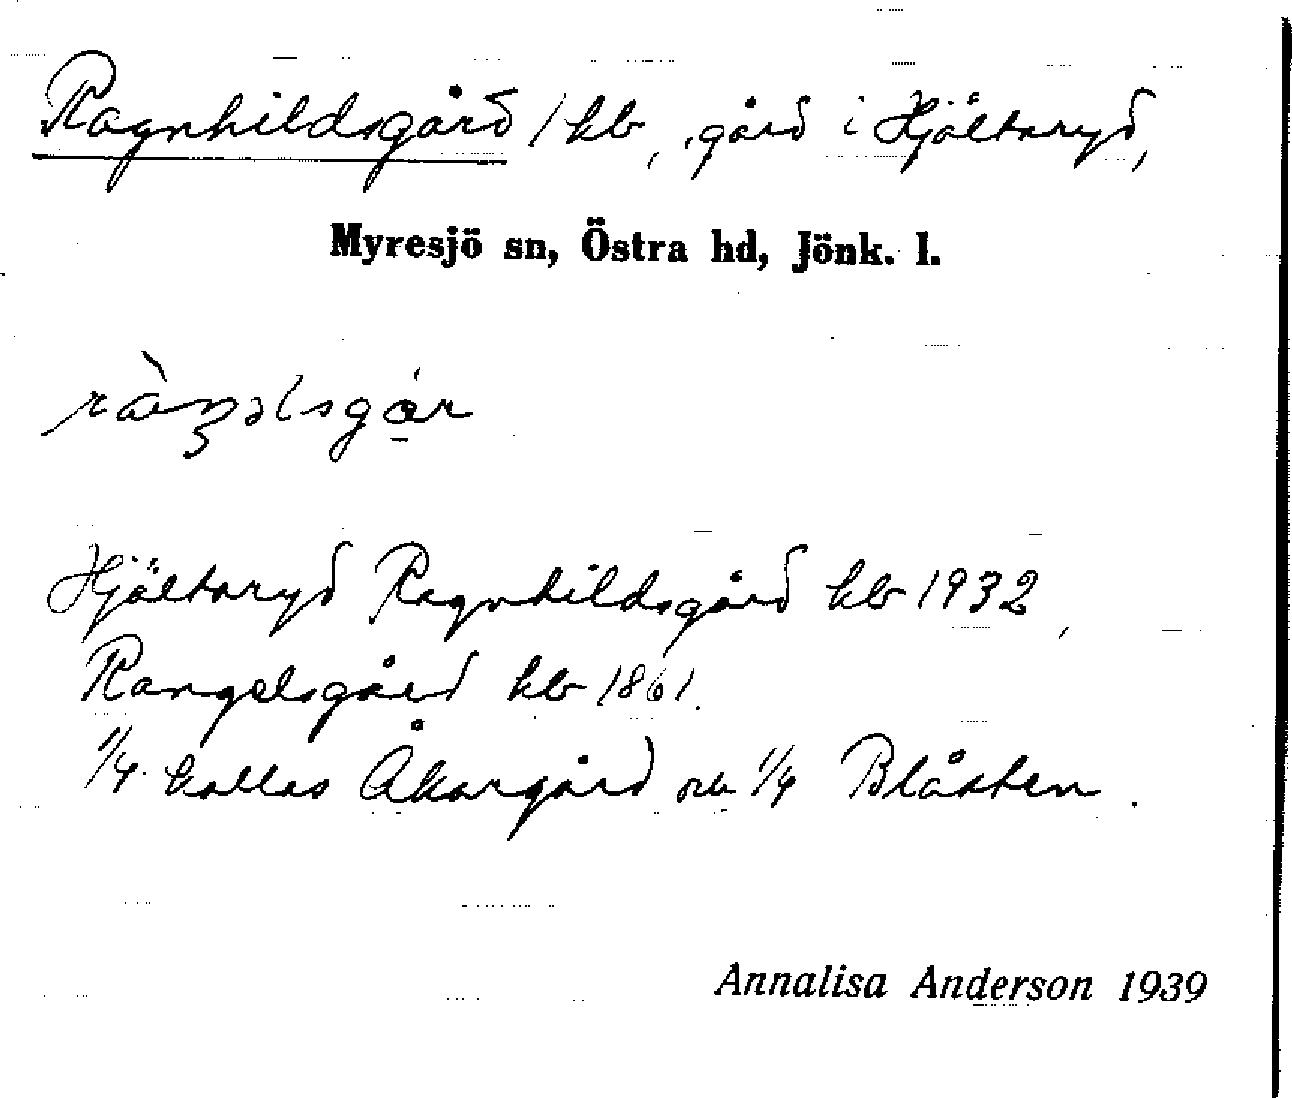 Ragnhildsgård 1 kb, gård i Hjältaryd,
Myresjö sn, Östra hd, Jönk. l.
Hjältaryd Ragnhildsgård kb 1932,
Rangelsgård kb 1861.
1/4 kallas Åkargård och 1/4 Blåsten.
Annalisa Anderson 1939